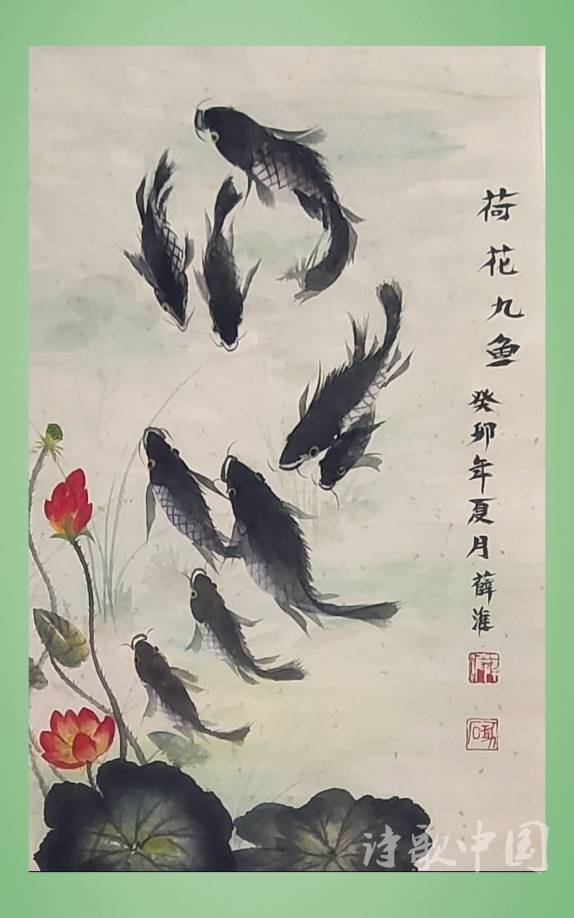 荷花九鱼
癸卯年夏月薛淮
诗歌中国